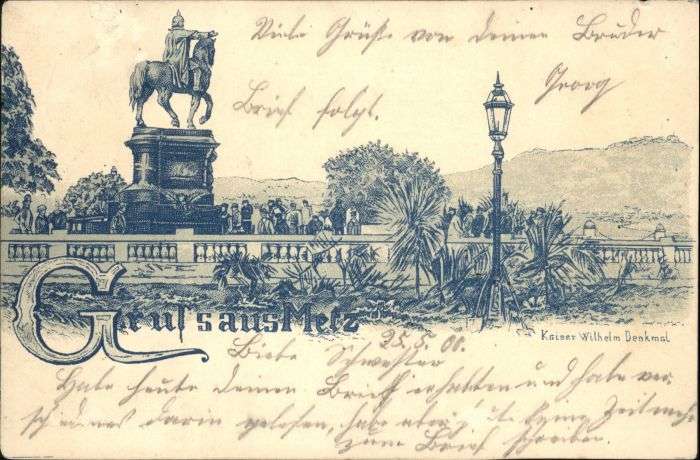 Viele Grüße von deinem Bruder
Georg
Brief folgt.
Gruss aus Metz
Kaiser Wilhelm Denkmal
25.5.00.
Liebe Schwester
Habe heute deinen Brief erhalten und habe ver
schiedenes darin gelesen, habe aber keine Zeit mehr
zum Brief schreiben.